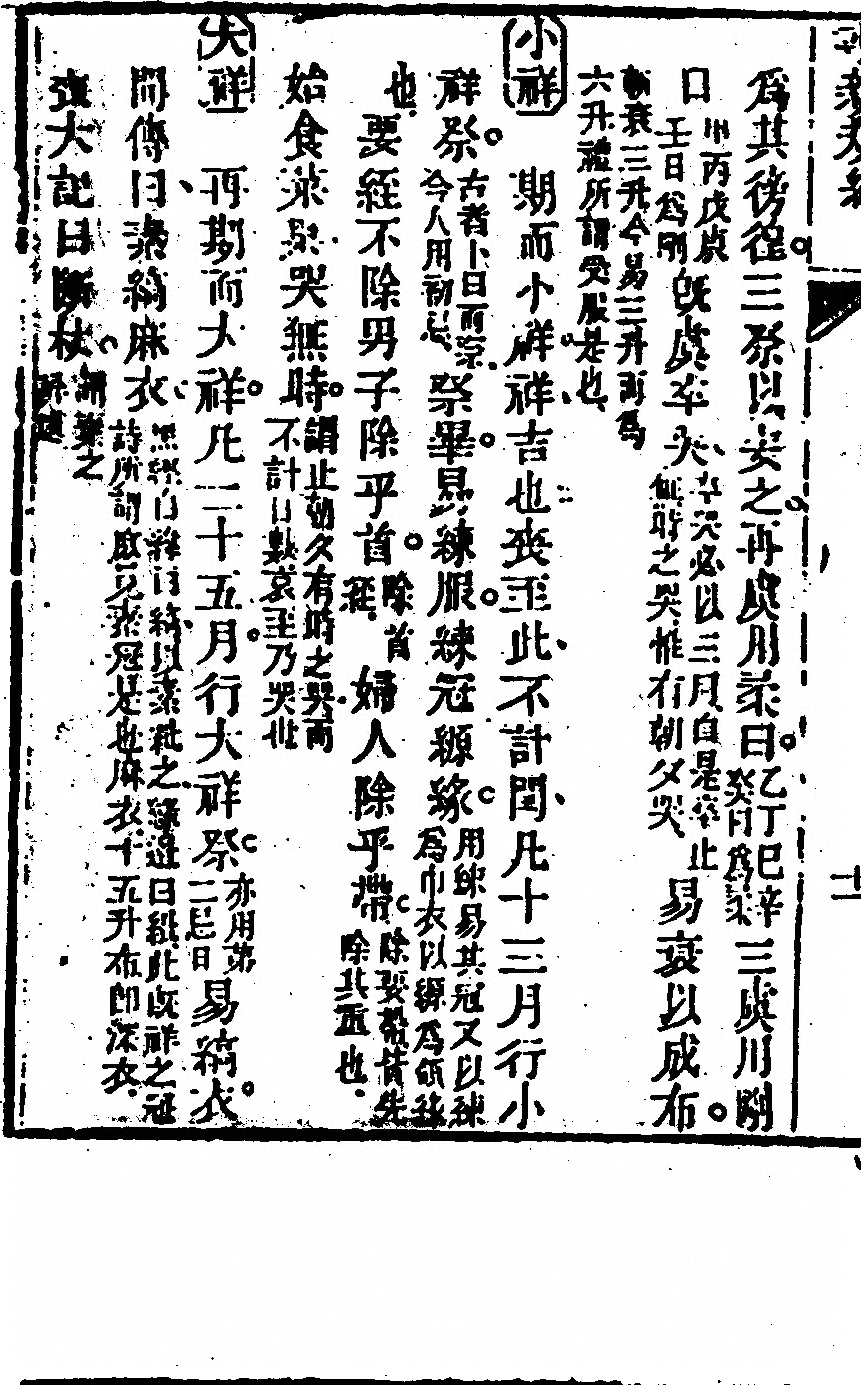 為其徬徨三祭以安之再虞用柔日乙丁巳辛癸日為柔三虞用剛
日甲丙戊庚壬日為剛既虞卒哭卒哭必以三月自是卒止無時之哭惟有朝夕哭易衰以成布
斬衰三升今易三升而為六升禮所謂受服是也
小祥 期而小祥祥吉也喪至此不計閏凡十三月行小
祥祭古者卜日而祭今人用初忌祭畢易練服練冠縓緣用練易其冠又以練為巾衣以縓為領緣
也要絰不除男子除乎首除首絰婦人除乎帶除要帶皆先除其重也
始食菜果哭無時謂止朝夕有時之哭而不計日數哀至乃哭也
大祥 再期而大祥凡二十五月行大祥祭亦用第二忌日易縞衣
間傳曰素縞麻衣黑經白緯曰縞以素紕之緣邊曰紕此既祥之冠詩所謂庶見素冠是也麻衣十五升布即深衣
喪大記曰斷杖謂棄之